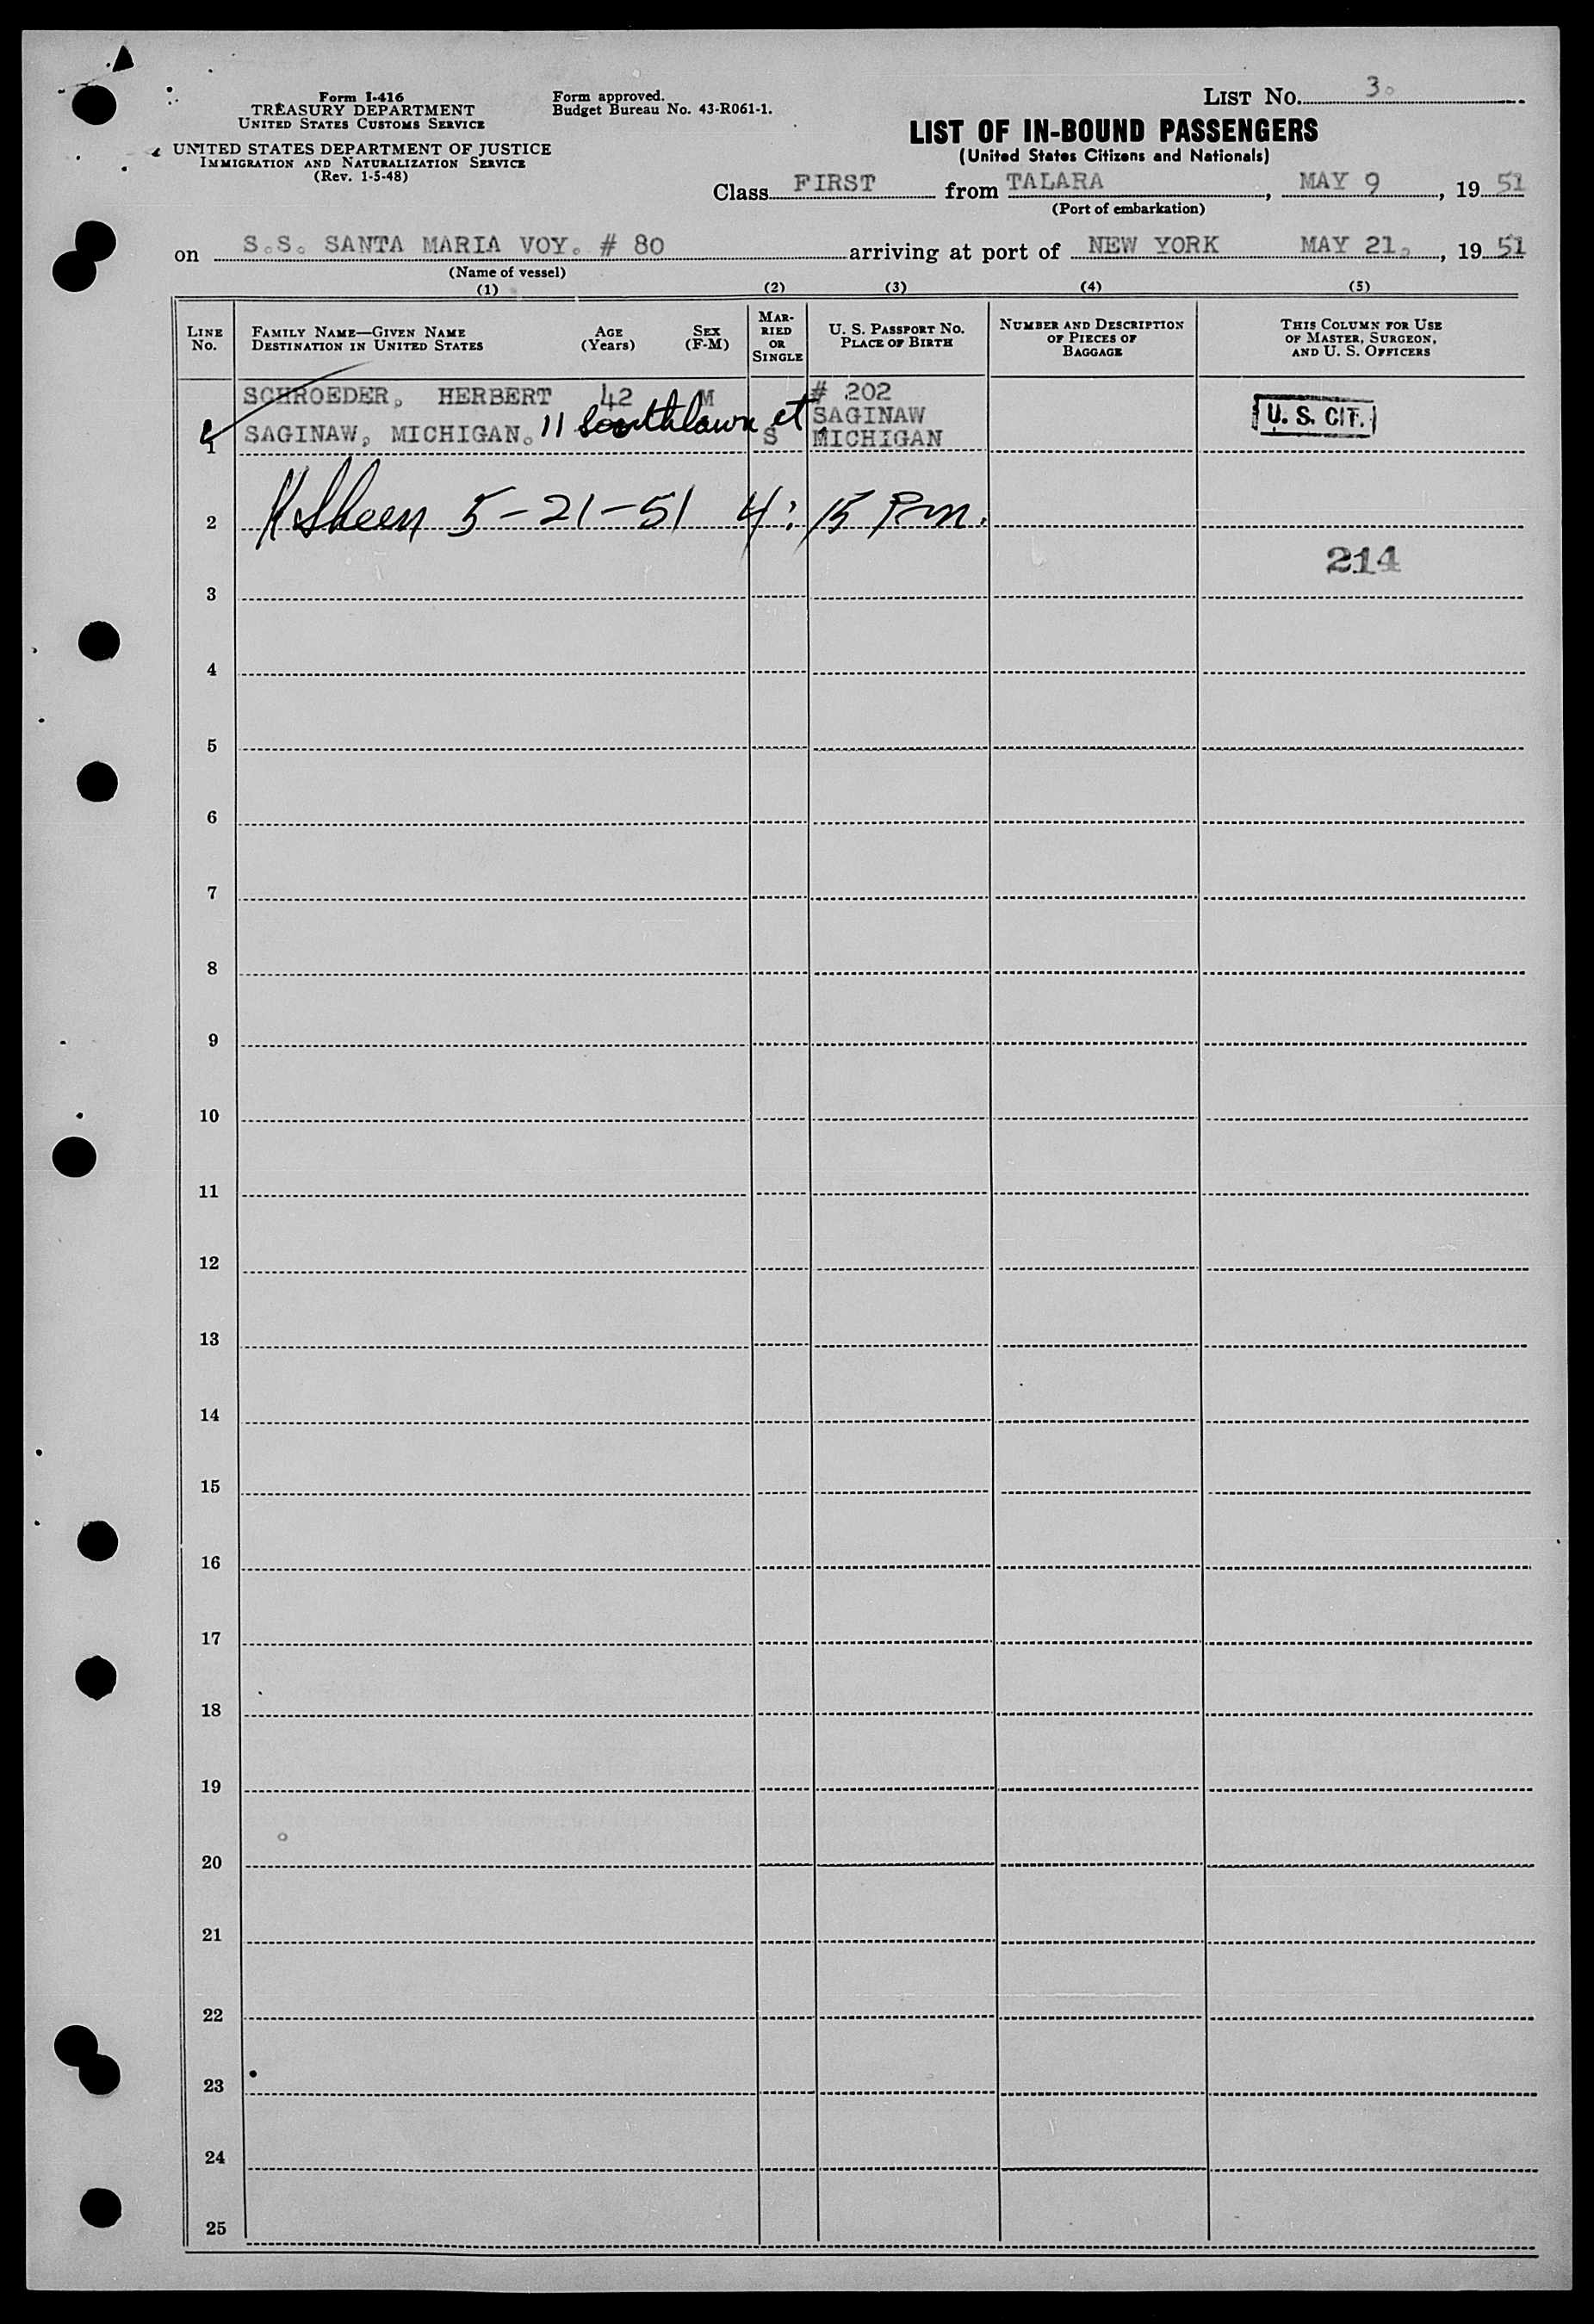 Form I-416
TREASURY DEPARTMENT
UNITED STATES CUSTOMS SERVICE
UNITED STATES DEPARTMENT OF JUSTICE
IMMIGRATION AND NATURALIZATION SERVICE
(Rev. 1-5-48)
Form approved.
Budget Bureau No. 43-R061-1.
LIST NO. 3.
LIST OF IN-BOUND PASSENGERS
(United States Citizens and Nationals)
Class FIRST from TALARA, MAY 9, 19 51
(Port of embarkation)
on S.S. SANTA MARIA VOY. # 80 arriving at port of NEW YORK MAY 21., 19 51
(Name of vessel)
(1) (2) (3) (4) (5)
LINE NO.
FAMILY NAME—GIVEN NAME
DESTINATION IN UNITED STATES
AGE
(Years)
SEX
(F-M)
MAR-
RIED
OR
SINGLE
U. S. PASSPORT NO.
PLACE OF BIRTH
NUMBER AND DESCRIPTION
OF PIECES OF
BAGGAGE
THIS COLUMN FOR USE
OF MASTER, SURGEON,
AND U. S. OFFICERS
SCHROEDER, HERBERT 42 M # 202
SAGINAW
1 SAGINAW, MICHIGAN. 11 Southlawn ct S MICHIGAN
U. S. CIT.
2 H Sheen 5-21-51 4:15 Pm.
214
3
4
5
6
7
8
9
10
11
12
13
14
15
16
17
18
19
20
21
22
23
24
25